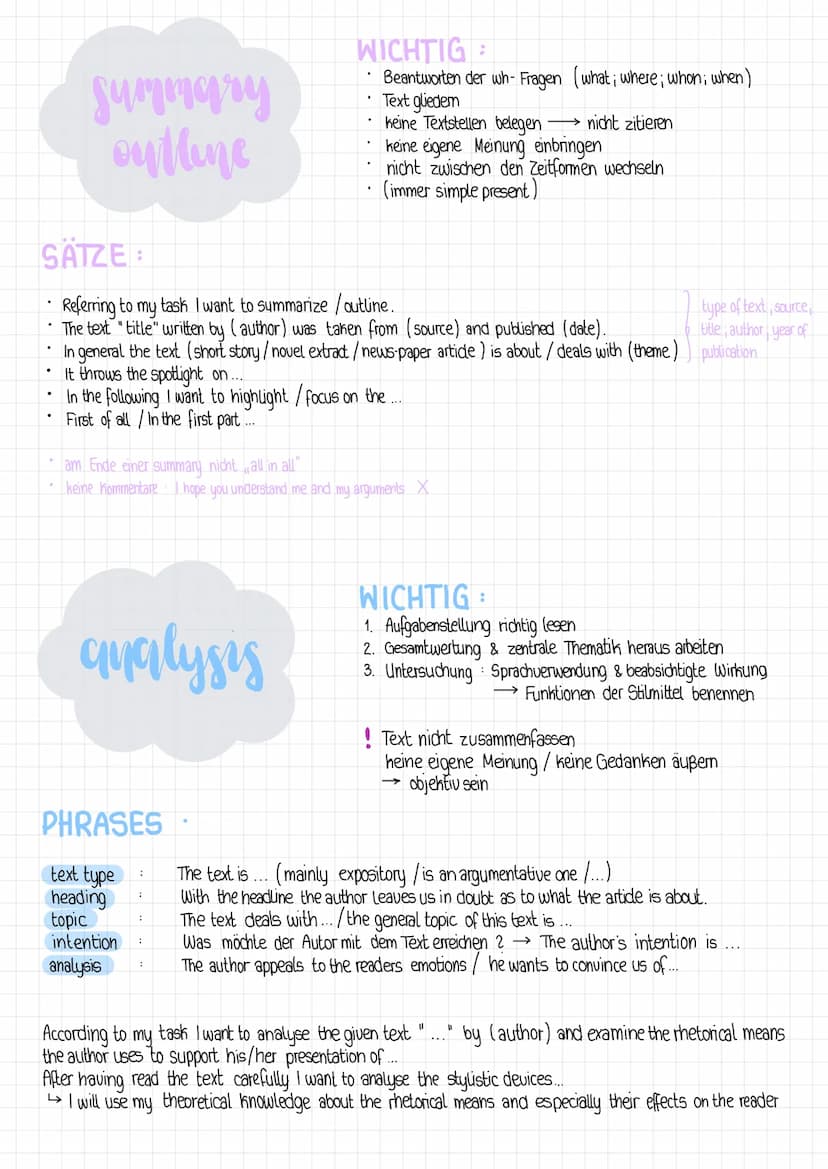 summary
outline
WICHTIG :
· Beantworten der wh- Fragen (what; where; whon; when)
· Text gliedern
· keine Textstellen belegen → nicht zitieren
· keine eigene Meinung einbringen
· nicht zwischen den Zeitformen wechseln
· (immer simple present)
SÄTZE :
· Referring to my task I want to summarize / outline.
· The text "title" written by (author) was taken from (source) and published (date).
· In general the text (short story / novel extract / news-paper article) is about / deals with (theme)
· It throws the spotlight on ...
· In the following I want to highlight / focus on the ...
· First of all / In the first part ...
type of text, source,
title, author, year of
publication
· am Ende einer summary nicht „all in all"
· keine Kommentare : I hope you understand me and my arguments X
analysis
WICHTIG :
1. Aufgabenstellung richtig lesen
2. Gesamtwertung & zentrale Thematik heraus arbeiten
3. Untersuchung : Sprachverwendung & beabsichtigte Wirkung
→ Funktionen der Stilmittel benennen
! Text nicht zusammenfassen
keine eigene Meinung / keine Gedanken äußern
→ objektiv sein
PHRASES :
text type : The text is ... (mainly expository / is an argumentative one /...)
heading : With the headline the author leaves us in doubt as to what the article is about.
topic : The text deals with ... / the general topic of this text is ...
intention : Was möchte der Autor mit dem Text erreichen ? → The author's intention is ...
analysis : The author appeals to the readers emotions / he wants to convince us of ...
According to my task I want to analyse the given text "..." by (author) and examine the rhetorical means
the author uses to support his/her presentation of ...
After having read the text carefully I want to analyse the stylistic devices...
↳ I will use my theoretical knowledge about the rhetorical means and especially their effects on the reader